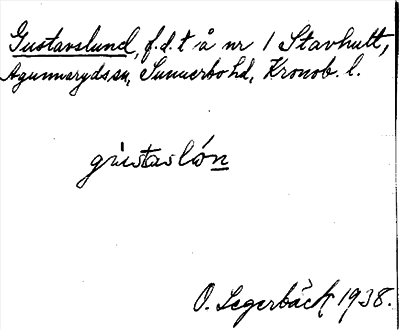 Gustavslund, f.d.t å nr 1 Stavhult,
Agunnarydssn, Sunnerbo hd, Kronob. l.
gùstaslón
O. Segerbäck 1938.